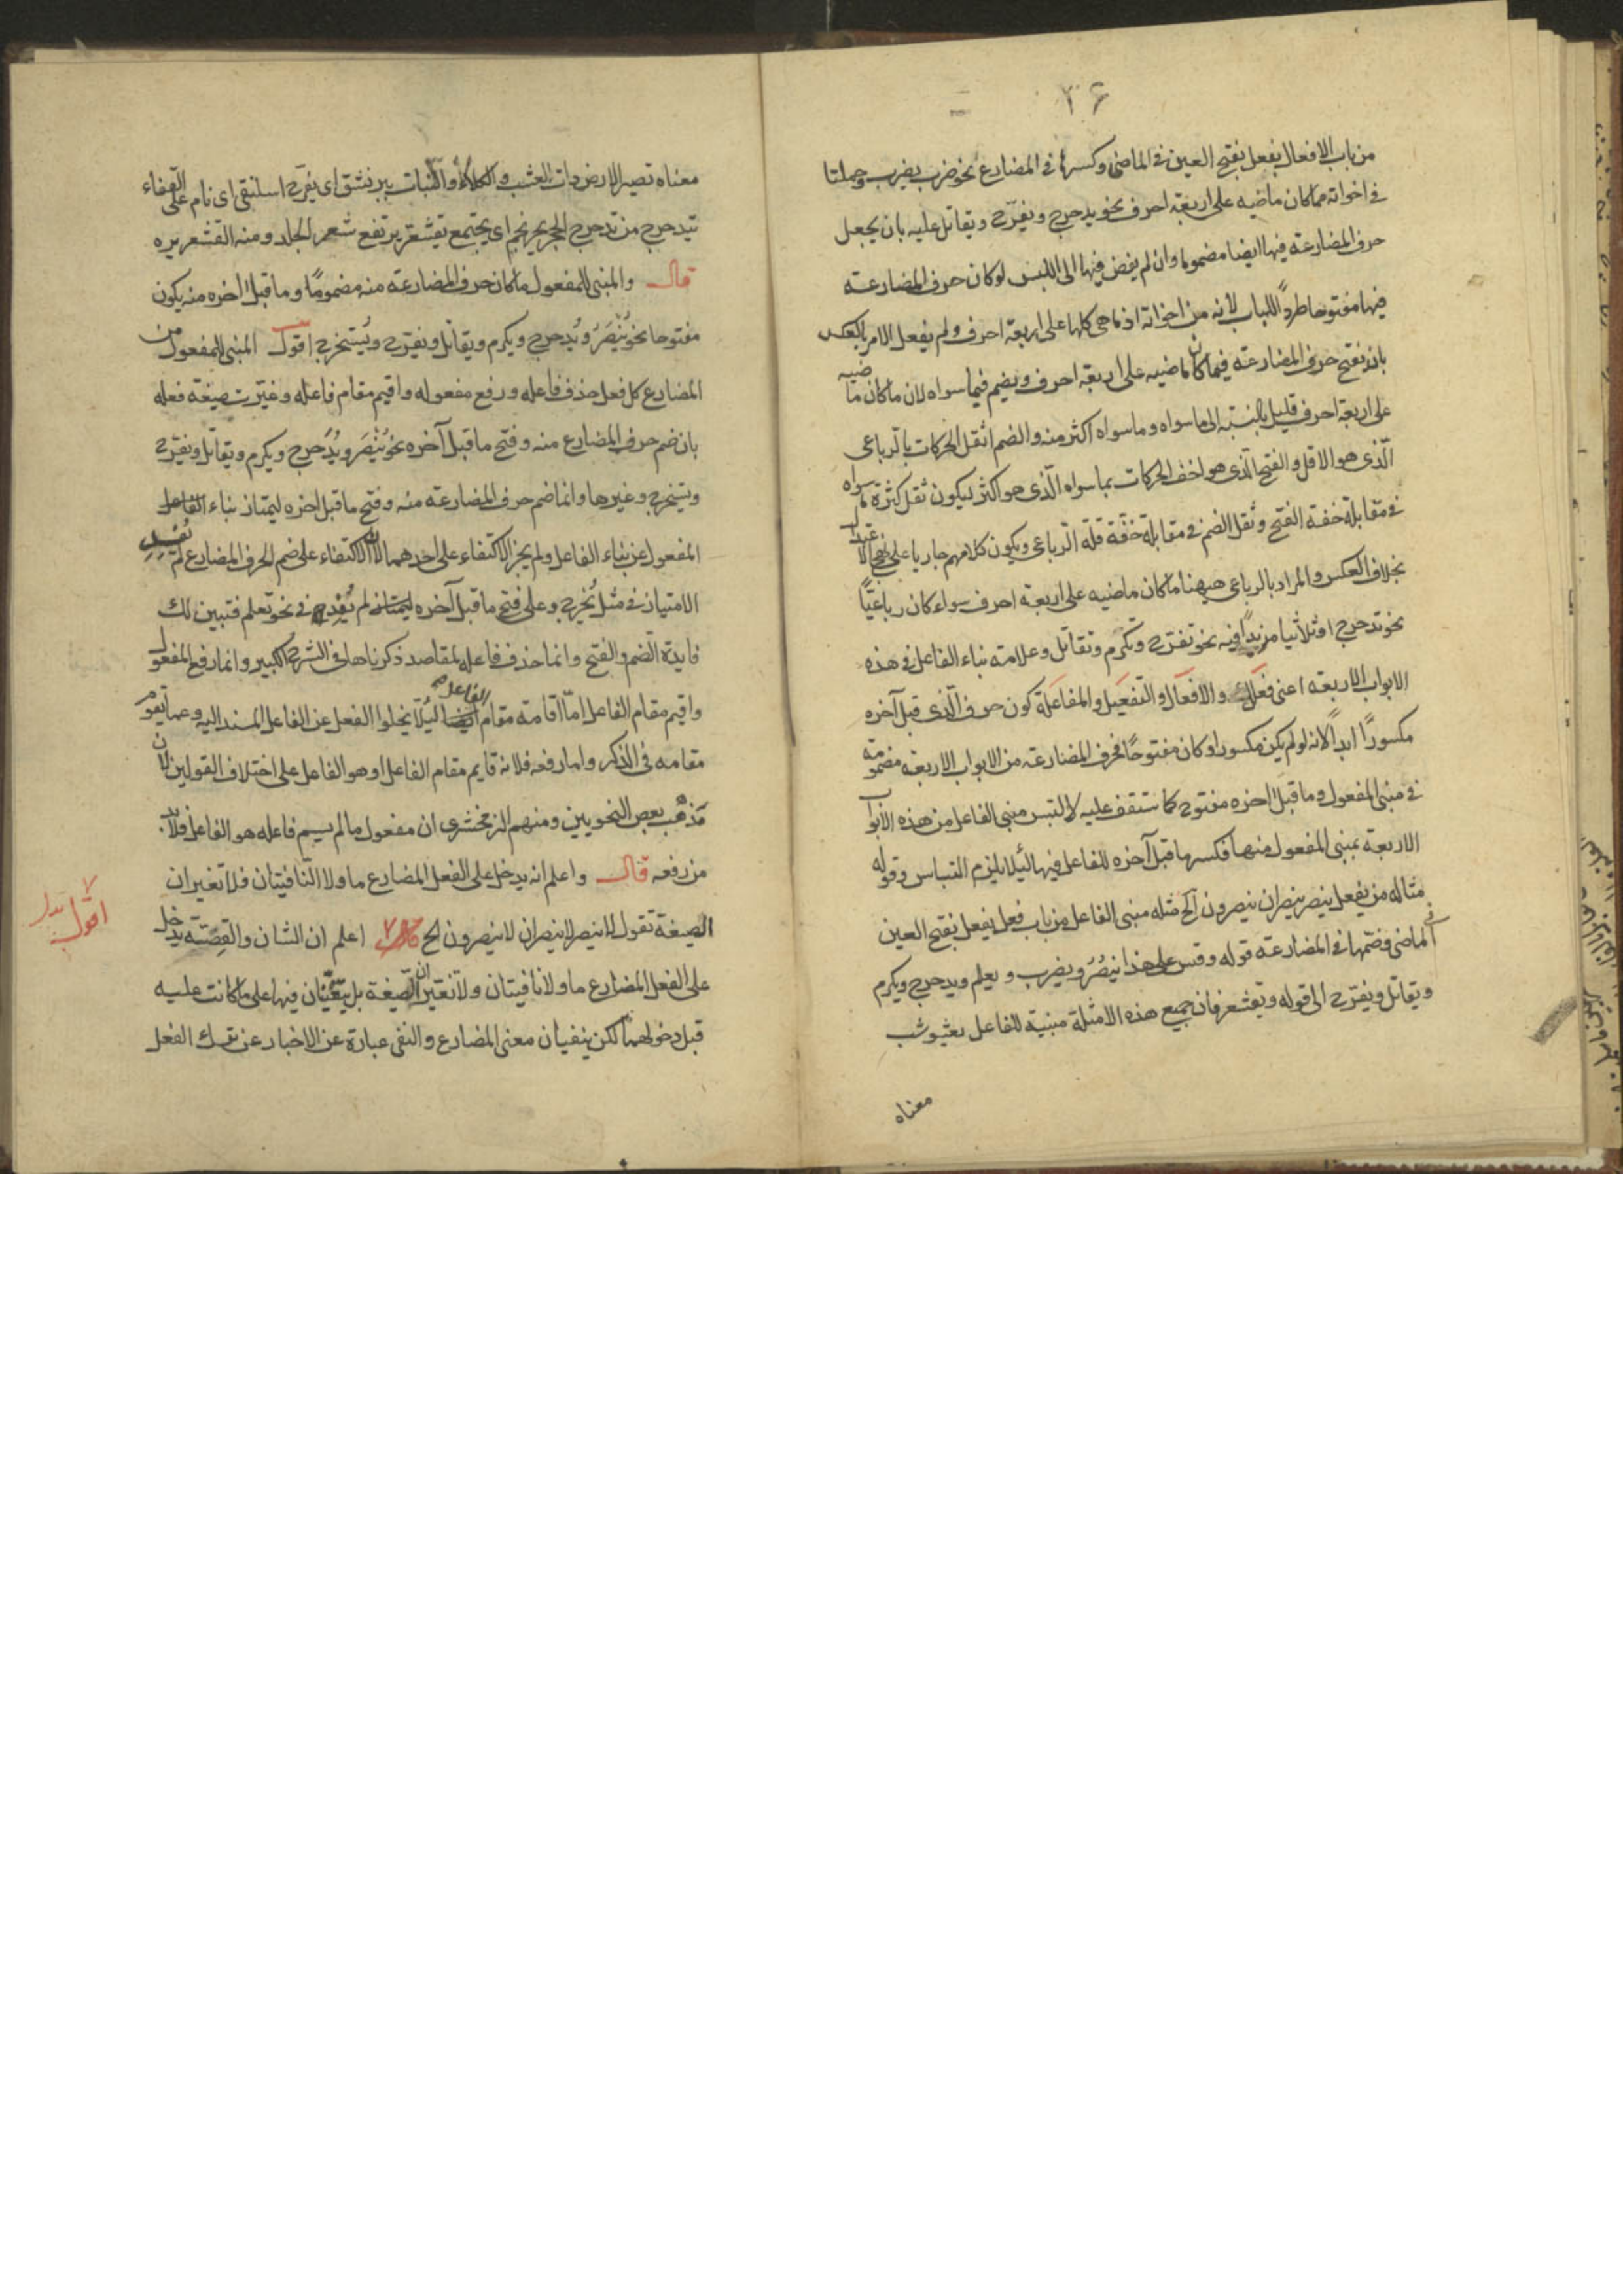 ۲۶
من باب الافعال يفعل بفتح العين فى الماضى وكسرها فى المضارع نحو ضرب يضرب وحملتا
فى اخواته مما كان ماضيه على اربعة احرف نحو يدحرج ويفرّح ويقاتل عليه بان يجعل
حرف المضارعة فيها ايضا مضموما وان لم يفض فيها الى اللبس لو كان حرف المضارعة
فيها مفتوحا طردًا للباب لانه من اخواته اذ ما هى كلها على اربعة احرف ولم يفعل الامر بالعكس
بان يفتح حرف المضارعة فيما كان ماضيه على اربعة احرف ويضم فيما سواه لان ما كان ماضيه
على اربعة احرف قليل بالنسبة الى ما سواه وما سواه اكثر منه والضم اثقل الحركات بالرباعى
الّذى هو الاقل والفتح الّذى هو اخف الحركات بما سواه الّذى هو اكثر ليكون ثقل كثرة ما سواه
فى مقابلة خفة الفتح وثقل الضم فى مقابلة خفّة قلة الرباعى ويكون كلامهم جاريا على نهج الاعتدال
بخلاف العكس والمراد بالرباعى ههنا ما كان ماضيه على اربعة احرف سواء كان رباعيًّا
نحو تدحرج او ثلاثيا مزيدًا فيه نحو تفرّح وتكرم وتقاتل وعلامة بناء الفاعل فى هذه
الابواب الاربعة اعنى فعلل والافعال والتفعيل والمفاعلة كون حرف الّذى قبل آخره
مكسورًا ابدا لانه لو لم يكن مكسورا وكان مفتوحًا فحرف المضارعة من الابواب الاربعة مضمومة
فى مبنى المفعول وما قبل اخره مفتوح كما ستقف عليه لالتبس مبنى الفاعل من هذه الابواب
الاربعة بمبنى المفعول منها فكسر ما قبل آخره للفاعل فيها لئيلا يلزم التباس وقوله
مثاله من يفعل ينصر ينصران ينصرون الخ مثله مبنى الفاعل من باب فعل يفعل بفتح العين
فى الماضى وضمها فى المضارعة قوله وقس على هذا ينصُرُ ويضرب ويعلم ويدحرج ويكرم
ويقاتل ويفرّح الى قوله ويقشعر فان جميع هذه الامثلة مبنية للفاعل يعشوشب
معناه
معناه تصير الارض ذات العشب والكلاء والنبات يبرنشق اى يفرّح اسلنقى اى نام على القفاء
تيدحرج من تدحرج الحجر يحرنجم اى يجتمع تقشعر يرتفع شعر الجلد ومنه القشعريره
قال والمبنى للمفعول ما كان حرف المضارعة منه مضمومًا وما قبل اخره منه يكون
مفتوحا نحو يُنْصَرُ ويُدحرج ويكرم ويقاتل ويفرّح ويُستخرج اقول المبنى للمفعول من
المضارع كل فعل حذف فاعله ورفع مفعوله واقيم مقام فاعله وغيّرت صيغة فعله
بان ضم حرف المضارع منه وفتح ما قبل آخره نحو يُنْصَر ويُدَحرج ويكرم ويقاتل ويفرّح
ويستخرج وغيرها وانما ضم حرف المضارعة منه وفتح ما قبل اخره ليمتاز بناء الفاعل
المفعول عن بناء الفاعل ولم يجز الاكتفاء على احدهما لان الاكتفاء على ضم الحرف المضارع لم يُفِد
الامتياز فى مثل يُخرج وعلى فتح ما قبل آخره ليمتاز لم يُفِد فى نحو تعلم فتبين لك
فايدة الضم والفتح وانما حذف فاعله لمقاصد ذكرناها فى الشرح الكبير وانما رفع المفعول
واقيم مقام الفاعل امّا اقامة مقام الفاعل لئلّا يخلوا الفعل عن الفاعل المسند اليه وعما يقوم
مقامه فى الذكر واما رفعه فلانه قايم مقام الفاعل او هو الفاعل على اختلاف القولين لان
مذهب بعض النحويين ومنهم الزمخشرى ان مفعول ما لم يسم فاعله هو الفاعل فلابد
من رفعه قال واعلم انه يدخل على الفعل المضارع ما ولا النّافيتان فلا تغيران
الصيغة تقول لا ينصر لا ينصران لا ينصرون الخ اعلم ان الشان والقصّة يدخل
على الفعل المضارع ما ولا نافيتان ولا تغيران الصّيغة بل يبقيان فيها على ما كانت عليه
قبل دخولهما لكن ينفيان معنى المضارع والنفى عبارة عن الاخبار عن ترك الفعل
اقول